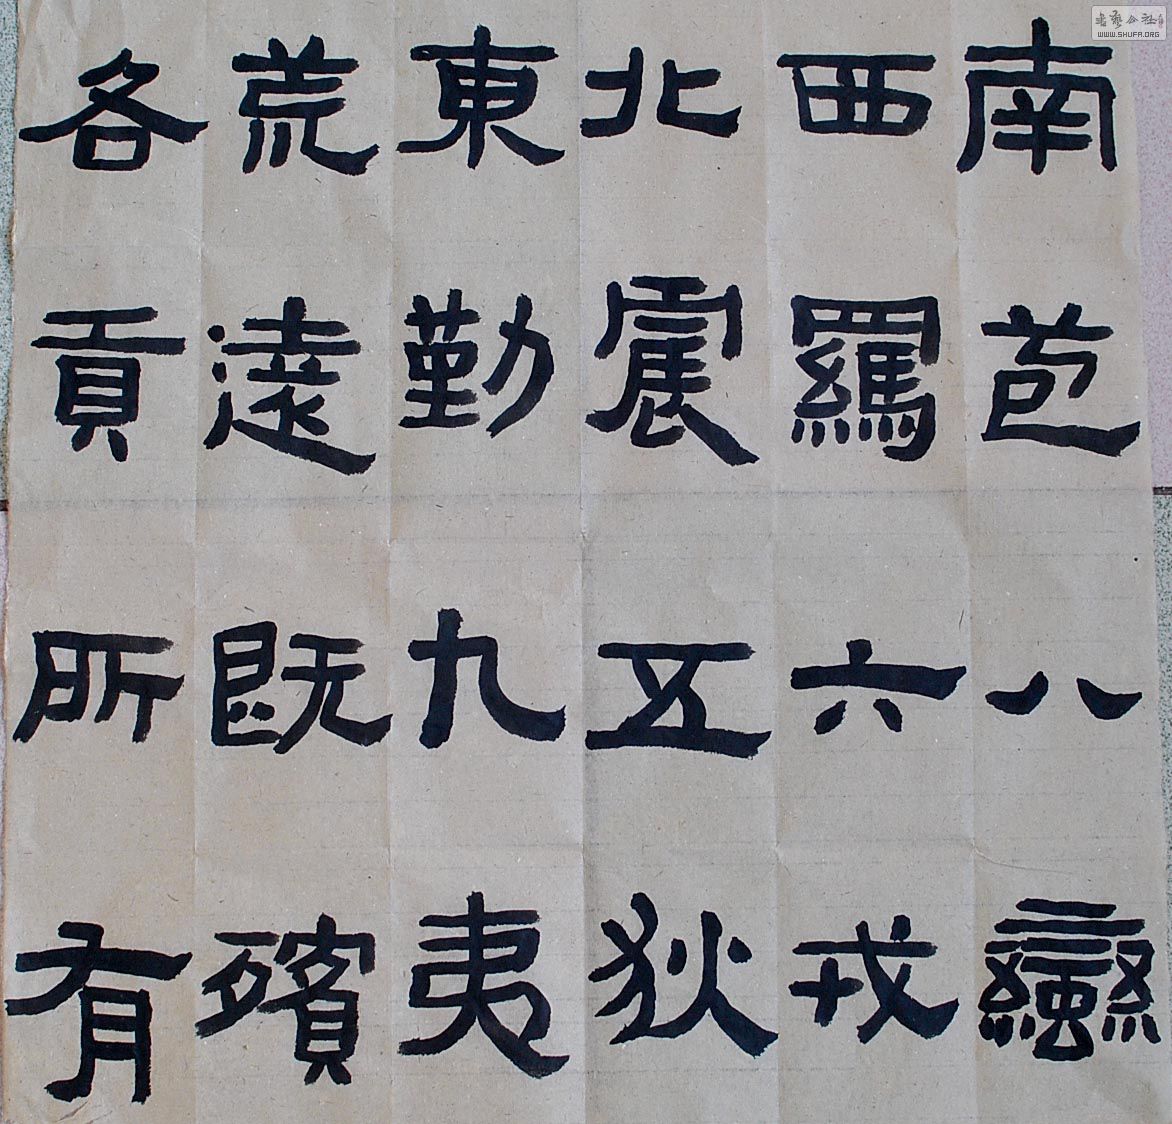 南苞八蠻
西羈六戎
北震五狄
東勤九夷
荒遠既殯
各貢所有
書藝公社
WWW.SHUFA.ORG